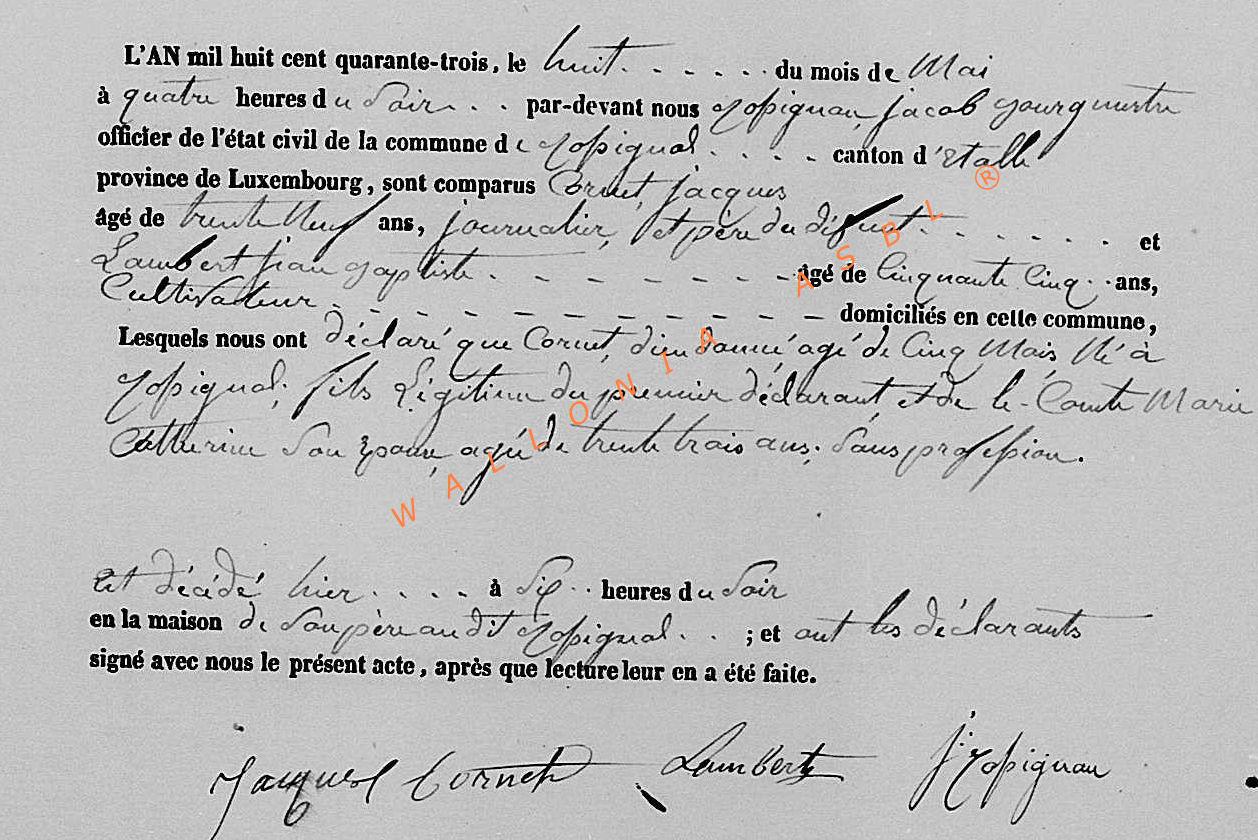 L'AN mil huit cent quarante-trois, le huit. - - - - . du mois de Mai
à quatre heures du Soir. . . par-devant nous Rossignon, jacob bourgmestre
officier de l'état civil de la commune de Rossignol. . . . - canton d'Etalle
province de Luxembourg, sont comparus Cornet, jacques
âgé de trente Neuf ans, journalier, et père du défunt. - - - - - - . et
Lambert jean baptiste. - - - - - - âgé de Cinquante Cinq. . ans,
Cultivateur. - - - - - - - - - - - - domiciliés en cette commune,
Lesquels nous ont déclaré que Cornet, dieudonné, agé de Cinq Mois, Né à
Rossignol, fils Légitime du premier déclarant, et de le Comte Marie
Catherine Son Epouse, agée de trente trois ans, Sans profession.
Est décédé hier. . . . - à Six . . heures du Soir
en la maison de Son père audit Rossignol. . ; et ont les déclarants
signé avec nous le présent acte, après que lecture leur en a été faite.
Jacques Cornet Lambert J. Rossignon
WALLONIA ASBL ®